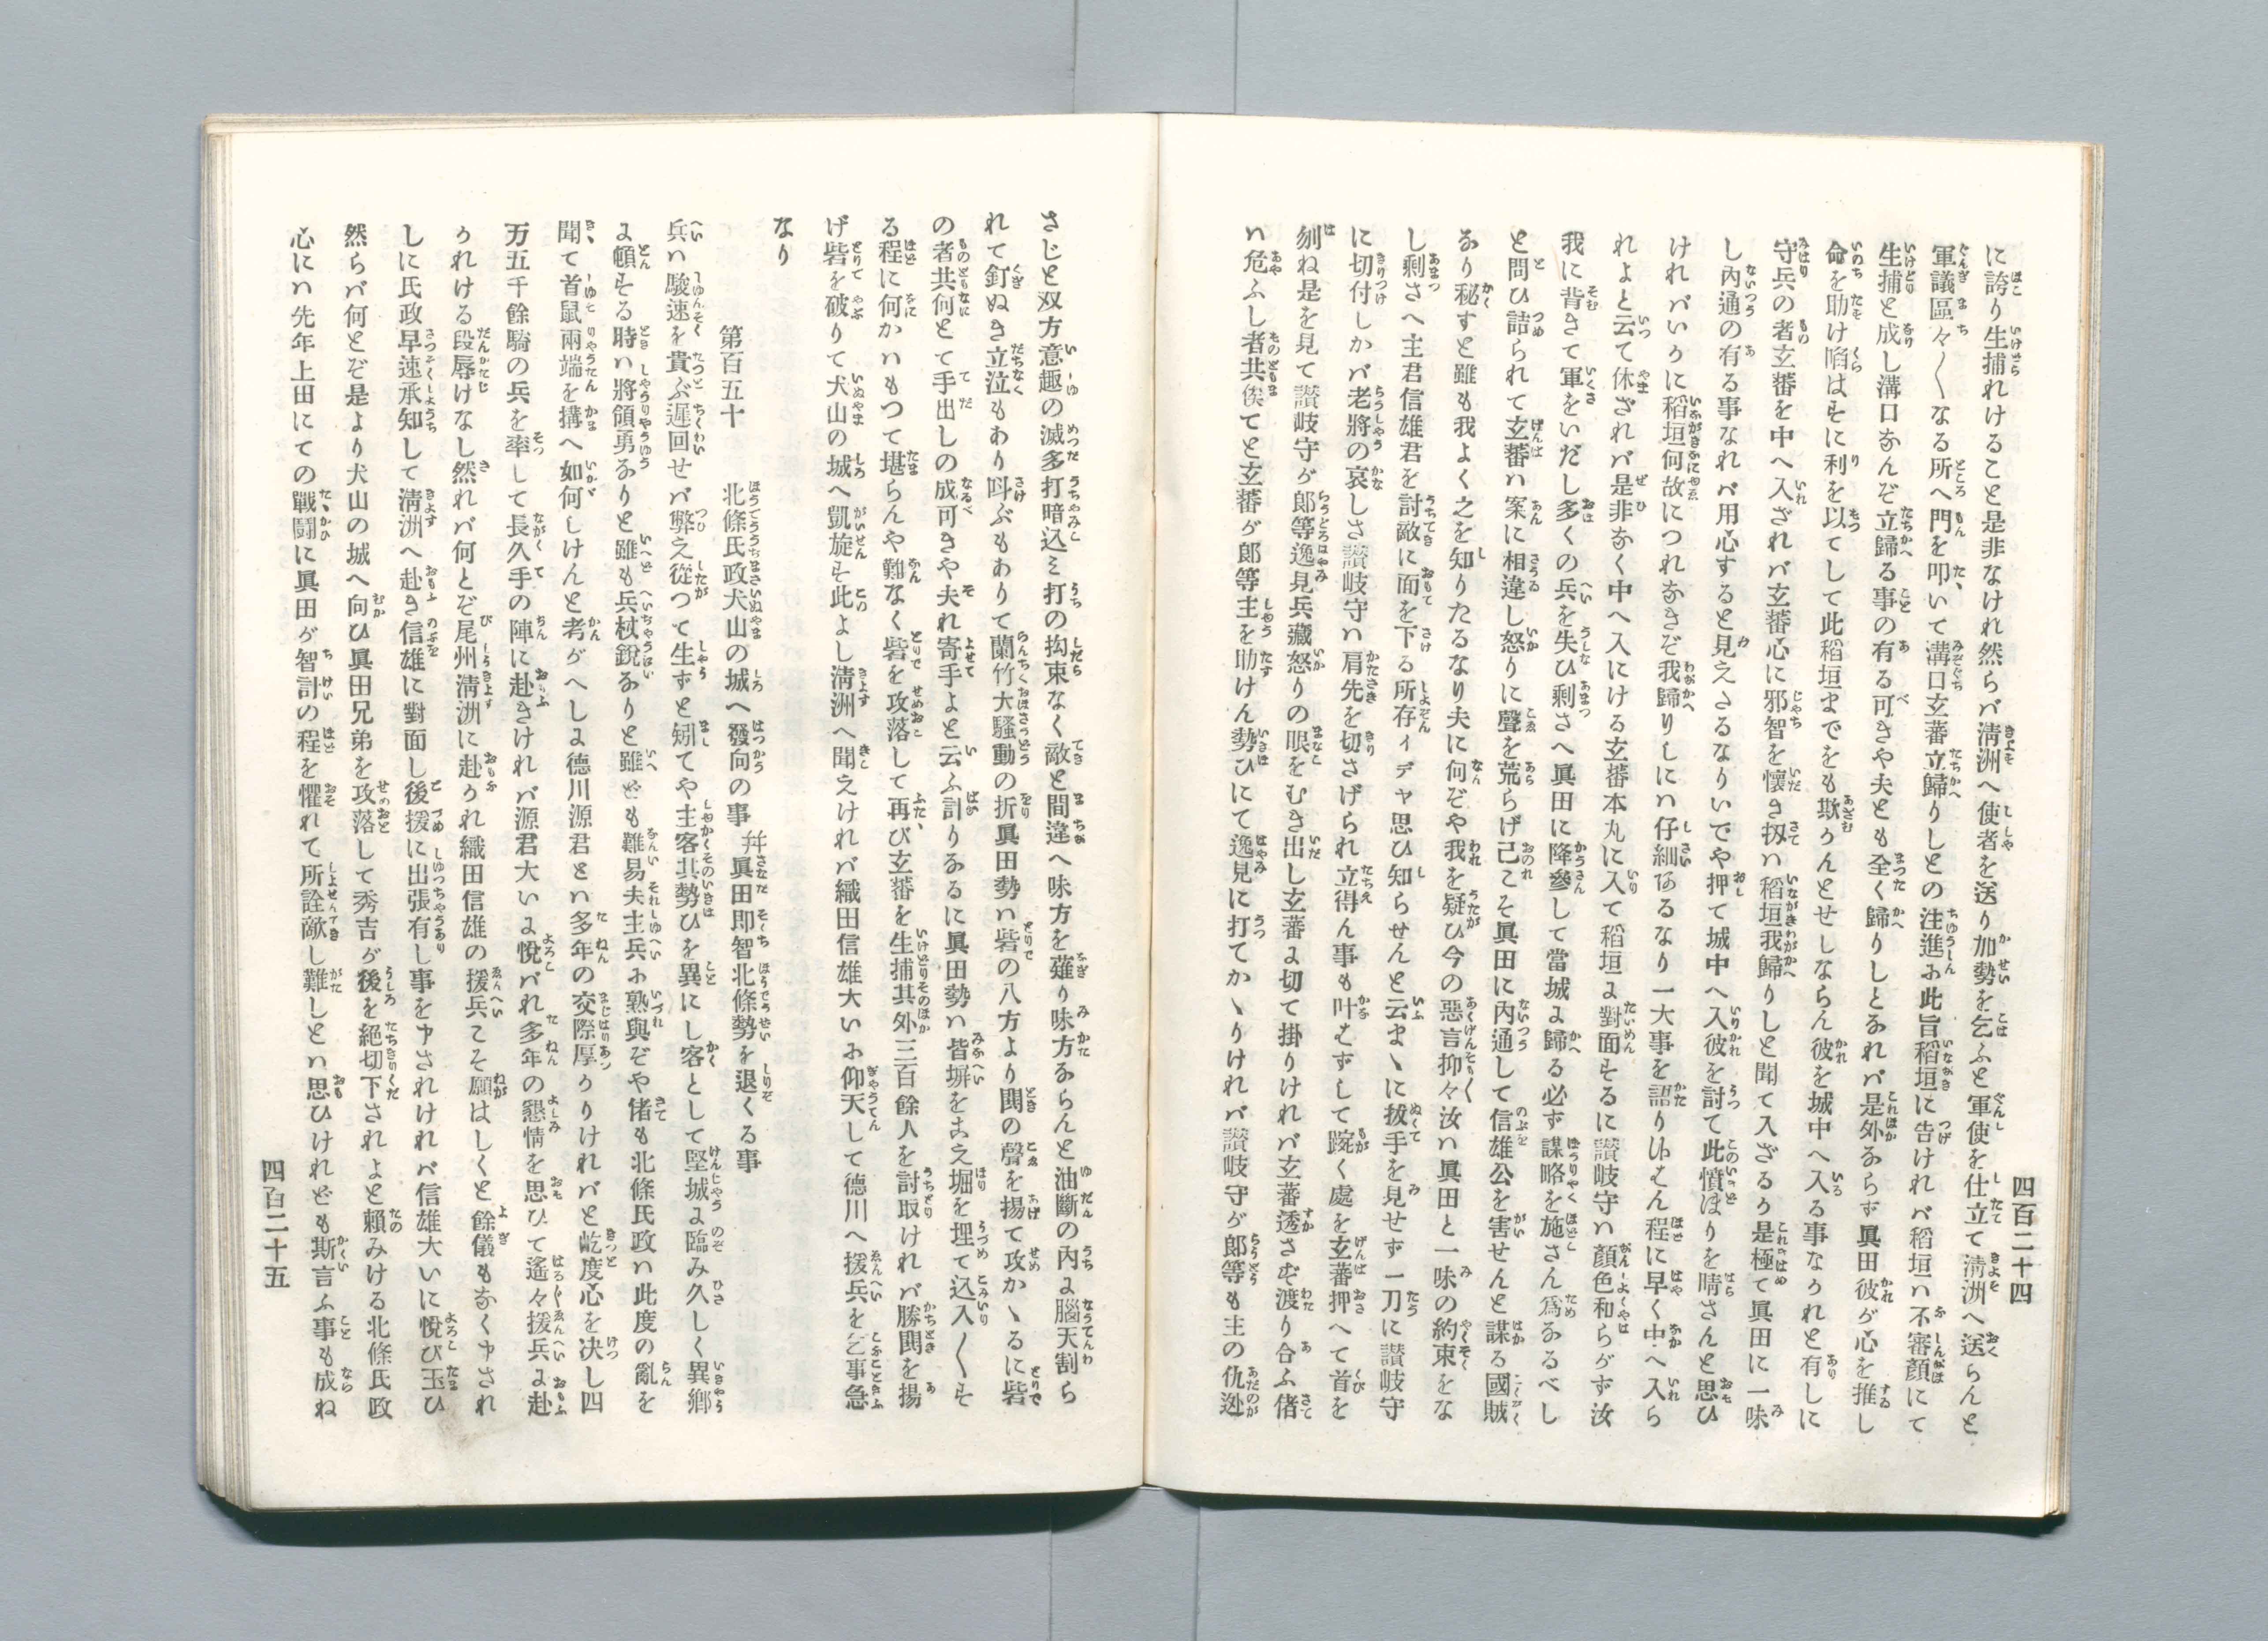 四百二十四
に誇り生捕れけること是非なけれ然らバ清洲へ使者を送り加勢を乞ふと軍使を仕立て清洲へ送らんと
軍議區々〱なる所へ門を叩いて溝口玄蕃立歸りしとの注進に此旨稻垣に告けれバ稻垣ハ不審顏にて
生捕と成し溝口なんぞ立歸る事の有る可きや夫とも全く歸りしとあれバ是外ならず眞田彼が心を推し
命を助け啗はすに利を以てして此稻垣までをも欺かんとせしならん彼を城中へ入る事なかれと有しに
守兵の者玄蕃を中へ入ざれバ玄蕃心に邪智を懷き扨ハ稻垣我歸りしと聞て入ざるか是極て眞田に一味
し內通の有る事なれバ用心すると見えさるなりいでや押て城中へ入彼を討て此憤ほりを晴さんと思ひ
けれバいかに稻垣何故につれなきぞ我歸りしにハ仔細あるなり一大事を語り申さん程に早く中へ入ら
れよと云て休ざれバ是非なく中へ入にける玄蕃本丸に入て稻垣に對面するに讃岐守ハ顏色和らがず汝
我に背きて軍をいだし多くの兵を失ひ剩さへ眞田に降參して當城に歸る必ず謀略を施さん爲なるべし
と問ひ詰られて玄蕃ハ案に相違し怒りに聲を荒らげ己こそ眞田に內通して信雄公を害せんと謀る國賊
なり秘すと雖も我よく之を知りたるなり夫に何ぞや我を疑ひ今の惡言抑々汝ハ眞田と一味の約束をな
し剩さへ主君信雄君を討敵に面を下る所存イデヤ思ひ知らせんと云まゝに拔手を見せず一刀に讃岐守
に切付しかバ老將の哀しさ讃岐守ハ肩先を切さげられ立得ん事も叶はずして踠く處を玄蕃押へて首を
刎ね是を見て讃岐守が郎等逸見兵藏怒りの眼をむき出し玄蕃に切て掛りけれバ玄蕃透さず渡り合ふ偖
ハ危ふし者共俟てと玄蕃が郎等主を助けん勢ひにて逸見に打てかゝりけれバ讃岐守が郎等も主の仇迯
さじと双方意趣の滅多打暗込ミ打の拘束なく敵と間違へ味方を薙り味方ならんと油斷の內に腦天割ら
れて釘ぬき立泣もあり叫ぶもありて蘭竹大騷動の折眞田勢ハ砦の八方より鬨の聲を揚て攻かゝるに砦
の者共何とて手出しの成可きや夫れ寄手よと云ふ計りなるに眞田勢ハ皆塀をこえ堀を埋て込入〱す
る程に何かハもつて堪らんや難なく砦を攻落して再び玄蕃を生捕其外三百餘人を討取けれバ勝鬨を揚
げ砦を破りて犬山の城へ凱旋す此よし清洲へ聞えけれバ織田信雄大いに仰天して德川へ援兵を乞事急
なり
第百五十 北條氏政犬山の城へ發向の事 幷眞田即智北條勢を退くる事
兵ハ駿速を貴ぶ遲回せバ弊え從つて生ずと矧てや主客其勢ひを異にし客として堅城に臨み久しく異鄉
に頓する時ハ將領勇なりと雖も兵杖銳なりと雖ども難易夫主兵に熟與ぞや偖も北條氏政ハ此度の亂を
聞て首鼠兩端を搆へ如何しけんと考がへしに德川源君とハ多年の交際厚かりけれバと屹度心を决し四
万五千餘騎の兵を率して長久手の陣に赴きけれバ源君大いに悅バれ多年の懇情を思ひて遙々援兵に赴
かれける段辱けなし然れバ何とぞ尾州清洲に赴かれ織田信雄の援兵こそ願はしくと餘儀もなく申され
しに氏政早速承知して清洲へ赴き信雄に對面し後援に出張有し事を申されけれバ信雄大いに悅び玉ひ
然らバ何とぞ是より犬山の城へ向ひ眞田兄弟を攻落して秀吉が後を絕切下されよと賴みける北條氏政
心にハ先年上田にての戰鬪に眞田が智計の程を懼れて所詮敵し難しとハ思ひけれども斯言ふ事も成ね
四百二十五